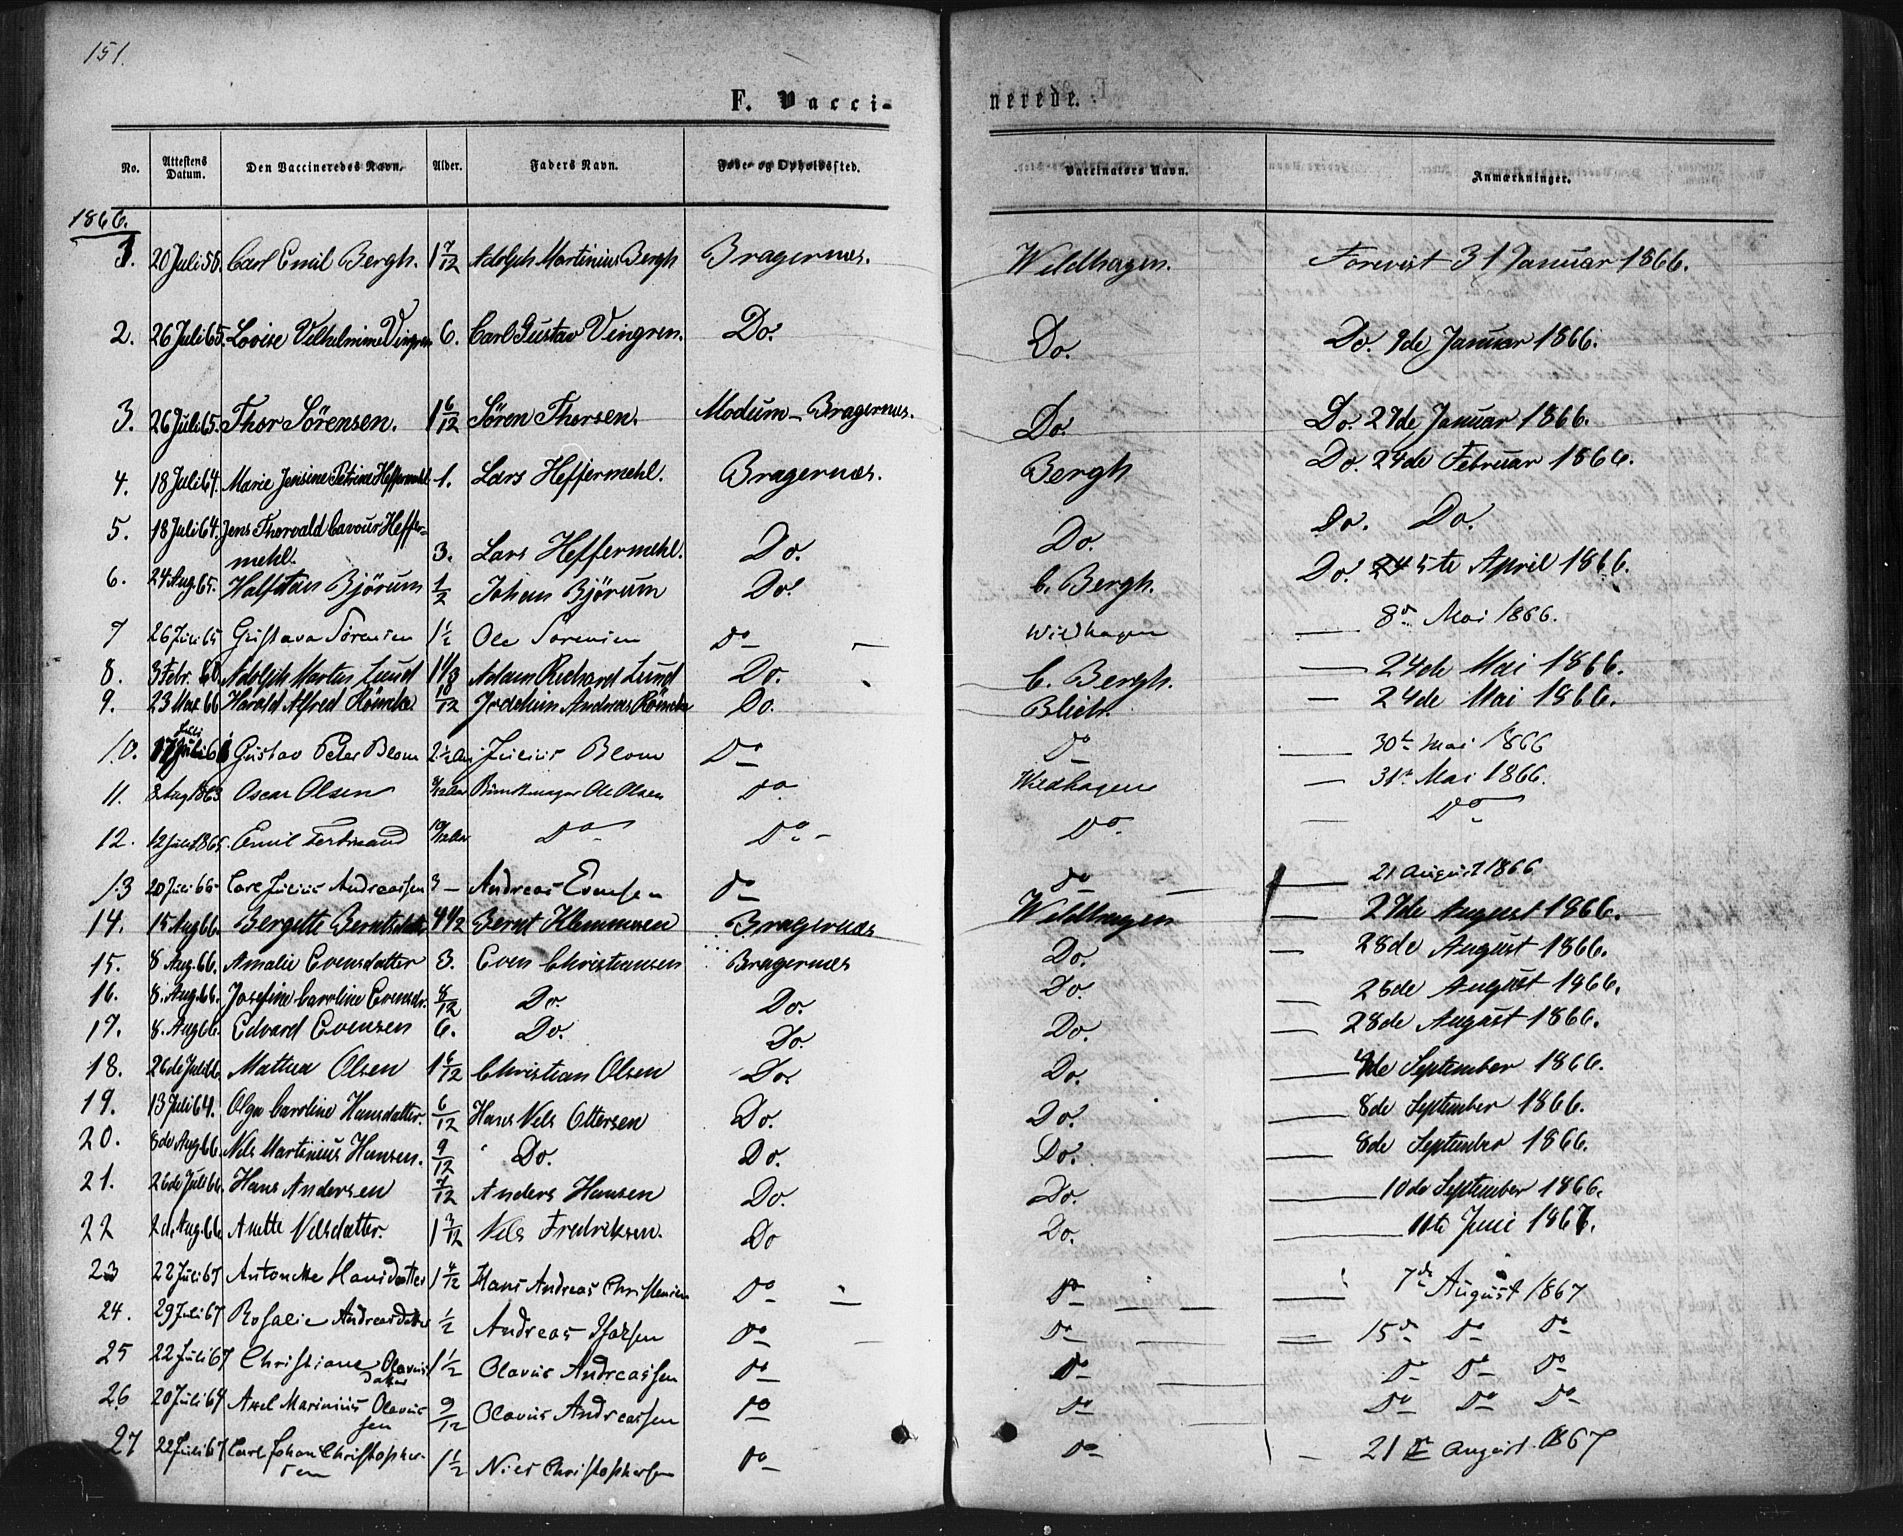 151.
F. Vacci- nerede.
No. Attestens Datum. Den Vaccineredes Navn. Alder. Faders Navn. Føde- og Opholdssted. Vaccinators Navn. Anmærkninger.
1866.
1. 20 Juli 58. Carl Emil Bergh. 1 7/12 Adolph Martinius Bergh Bragernæs. Wildhagen. Forevist 31 Januar 1866.
2. 26 Juli 65. Lovise Vilhelmine Vingren 6. Carl Gustav Vingren. Do. Do. Do. 9de Januar 1866.
3. 26 Juli 65. Thor Sörensen. 1 6/12 Sören Thorsen. Modum - Bragernæs. Do. Do. 27de Januar 1866.
4. 18 Juli 64. Marie Jensine Petrine Heffermehl. 1. Lars Heffermehl. Bragernæs. Bergh Do. 24de Februar 1866.
5. 18 Juli 64. Jens Thorvald Cavour Heffermehl. 3. Lars Heffermehl. Do. Do. Do. Do.
6. 24 Aug. 65. Halfdan Bjørum 1/2 Johan Bjørum Do. C. Bergh. Do. 5te April 1866.
7 26 Juli 65 Gustava Sørensen 1 1/2 Ole Sørensen Do Wildhagen — 8de Mai 1866.
8. 3 Febr. 60. Adolph Martin Lund 1 1/3 Adam Richard Lund Do. C. Bergh. — 24de Mai 1866.
9. 23 Mai 66 Harold Alfred Römcke 10/12 Joachim Andreas Römcke Do. Blich. — 24de Mai 1866.
10. 17 Juli 61 Gustav Peter Blom 2 1/2 Aar Julius Blom Do Do — 30te Mai 1866
11. 8 Aug 1863 Oscar Olsen 9/12 Aar Ole Olsen Do Wildhagen — 31te Mai 1866.
12. 12 Juli 1865. Emil Ferdinand 10/12 Aar Do Do - Do — Do
13 20 Juli 66 Carl Julius Andreassen 3 — Andreas Evensen Do Do — 21 August 1866
14. 15 Aug 66. Bergitte Berntsdatter 4 1/2 Bernt Klemmesen Bragernæs Wildhagen — 27de August 1866.
15. 8 Aug. 66. Amalie Evensdatter 3. Even Christiansen Bragernæs Do. — 28de August 1866.
16. 8. Aug. 66. Josefine Caroline Evensdr. 8/12 Do. Do. Do. — 28de August 1866.
17. 8. Aug 66. Edvard Evensen 6. Do. Do. Do. — 28de August 1866.
18. 26de Juli 66. Mathea Olsen 1 6/12 Christian Olsen Do. Do. — 4de September 1866.
19. 13 Juli 64. Olga Caroline Hansdatter. 6/12 Hans Nels Ottersen Do. Do. — 8de September 1866.
20. 8de Aug 66. Nels Martinius Hansen. 9/12 Do. Do. Do. — 8de September 1866.
21. 26de Juli 66. Hans Andersen 7/12 Anders Hansen Do. Do. — 10de September 1866.
22 2d. Aug. 66 Anette Nilsdatter. 1 2/12 Nels Fredriksen. Do Do. — 11te Juni 1867.
23 22 Juli 67 Antonette Hansdatter 1 4/12 Hans Andreas Christensen Do Do — 7de August 1867
24. 29 Juli 67 Rosalie Andreasdatter 1/2 Andreas Isaksen Do Do — 15de Do Do
25 22 Juli 67 Christiane Olavusdatter 1 1/2 Olavus Andreassen Do Do Do Do Do
26 20 Juli 67 Axel Marinius Olavussen 9/12 Olavus Andreassen Do Do Do Do Do
27 22 Juli 67 Carl Johan Christophersen 1 1/2 Niels Christophersen Do Do — 21de August 1867